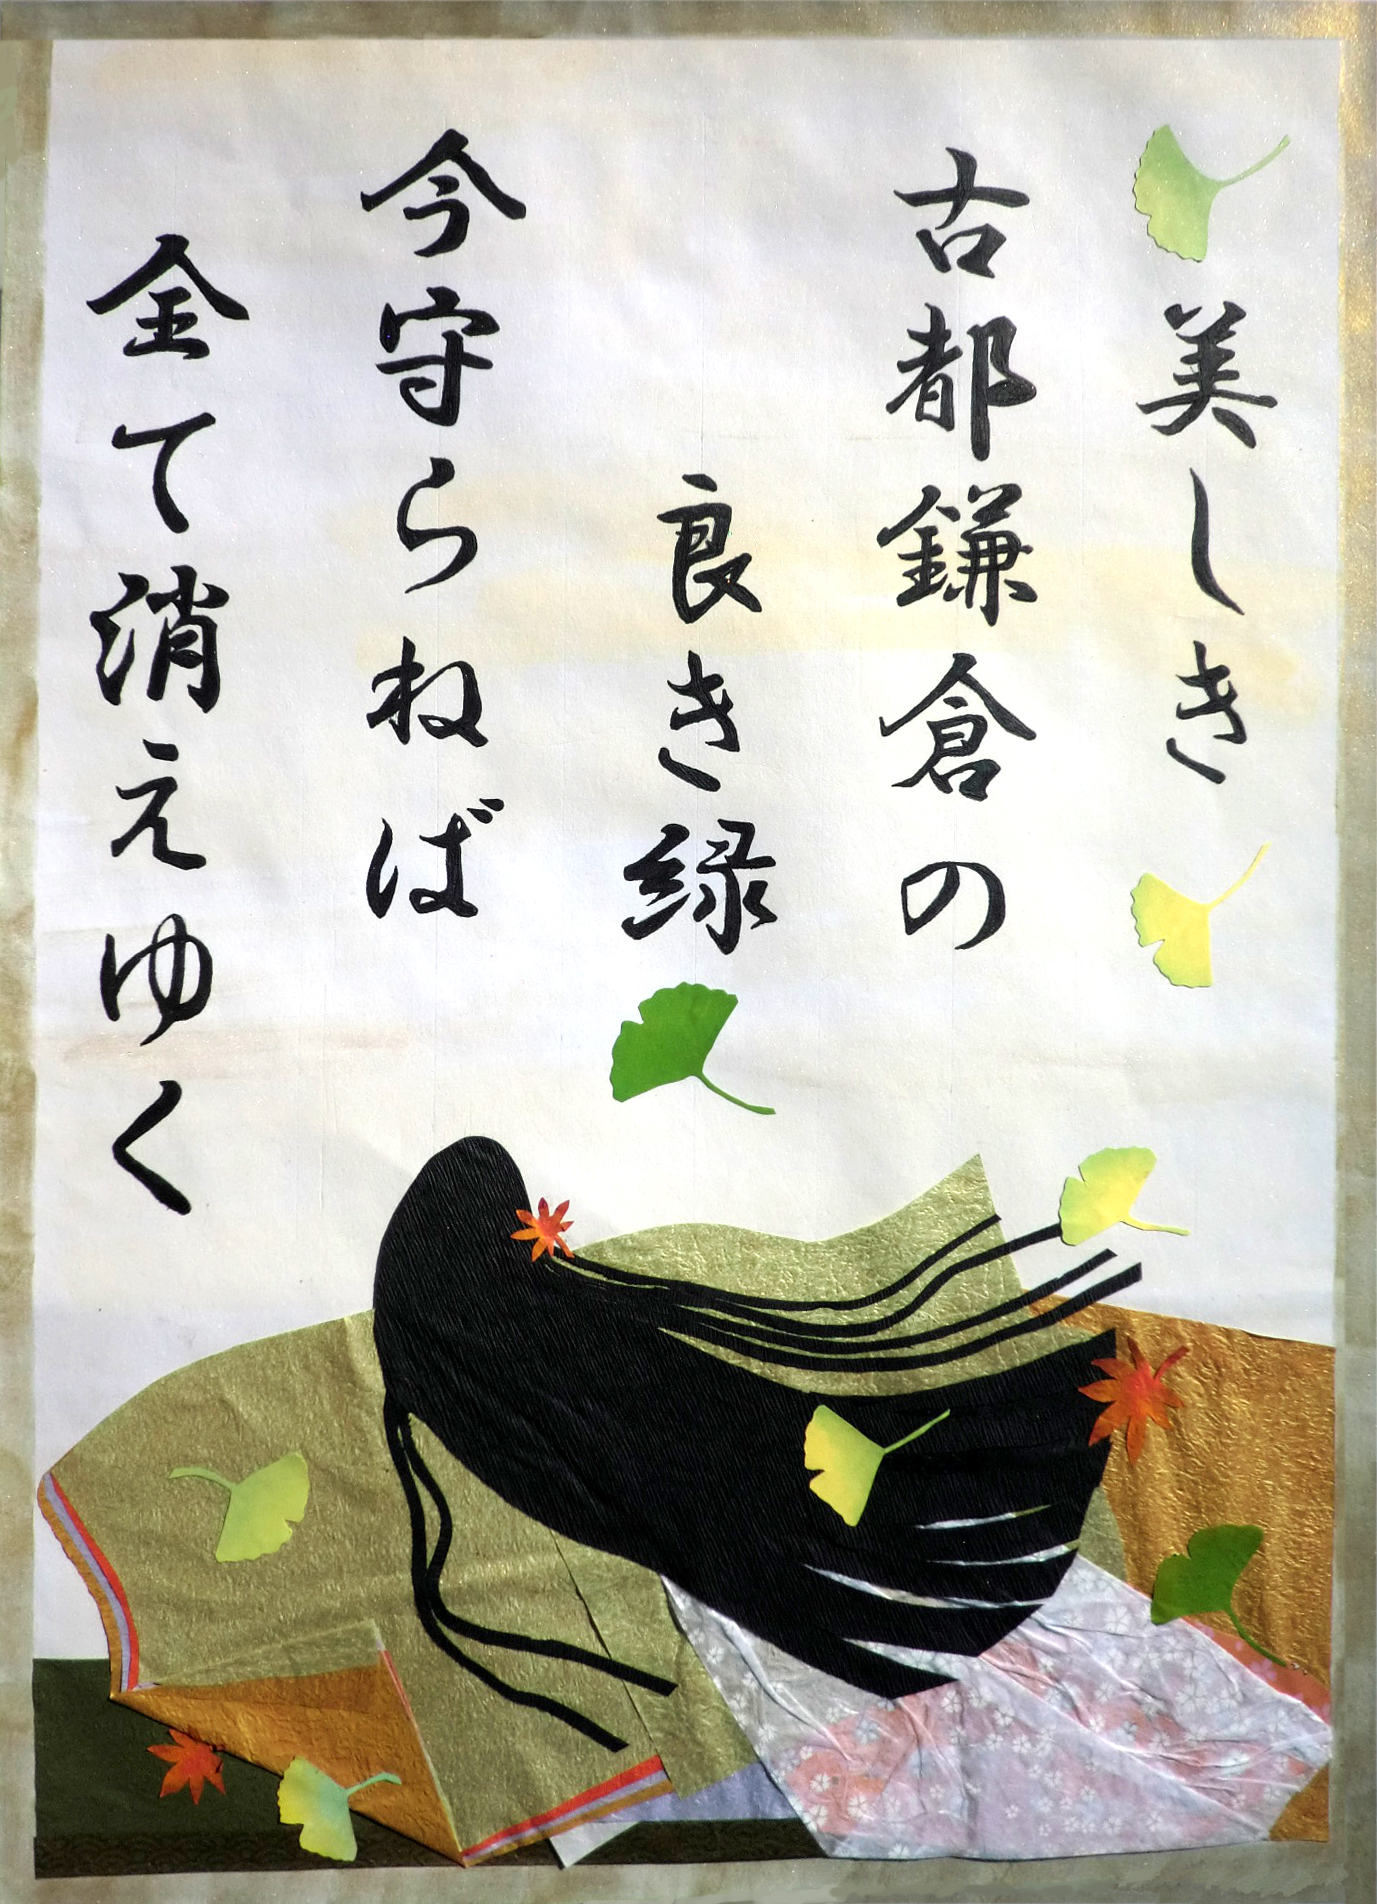 美しき
古都鎌倉の
良き緑
今守らねば
全て消えゆく